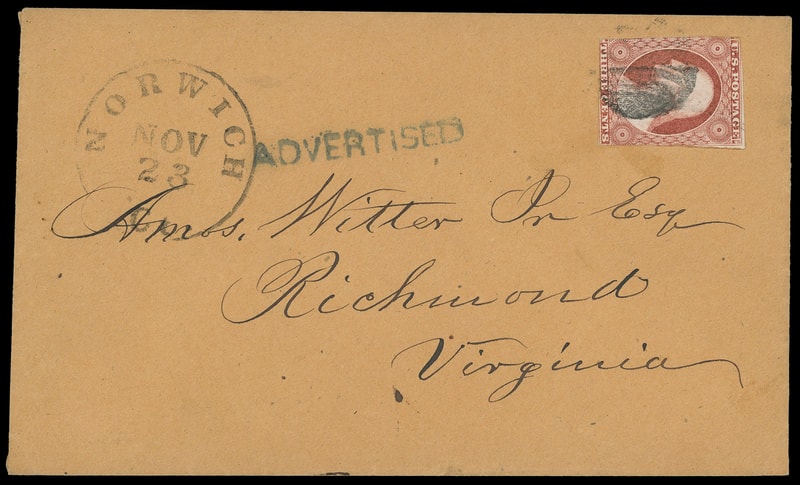 U.S. POSTAGE
THREE CENTS
NORWICH
NOV
23
ADVERTISED
Amos, Witter Jr Esq
Richmond
Virginia